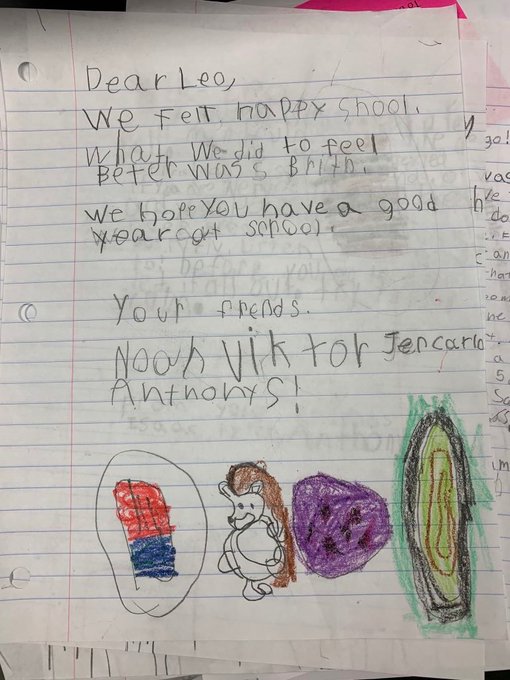 Dear Leo,
We Felt happy shool.
What We did to feel
Beter was Brith.
We hope you have a good
year at school.
Your frends.
Noah Viktor Jencarlo
Anthony S!